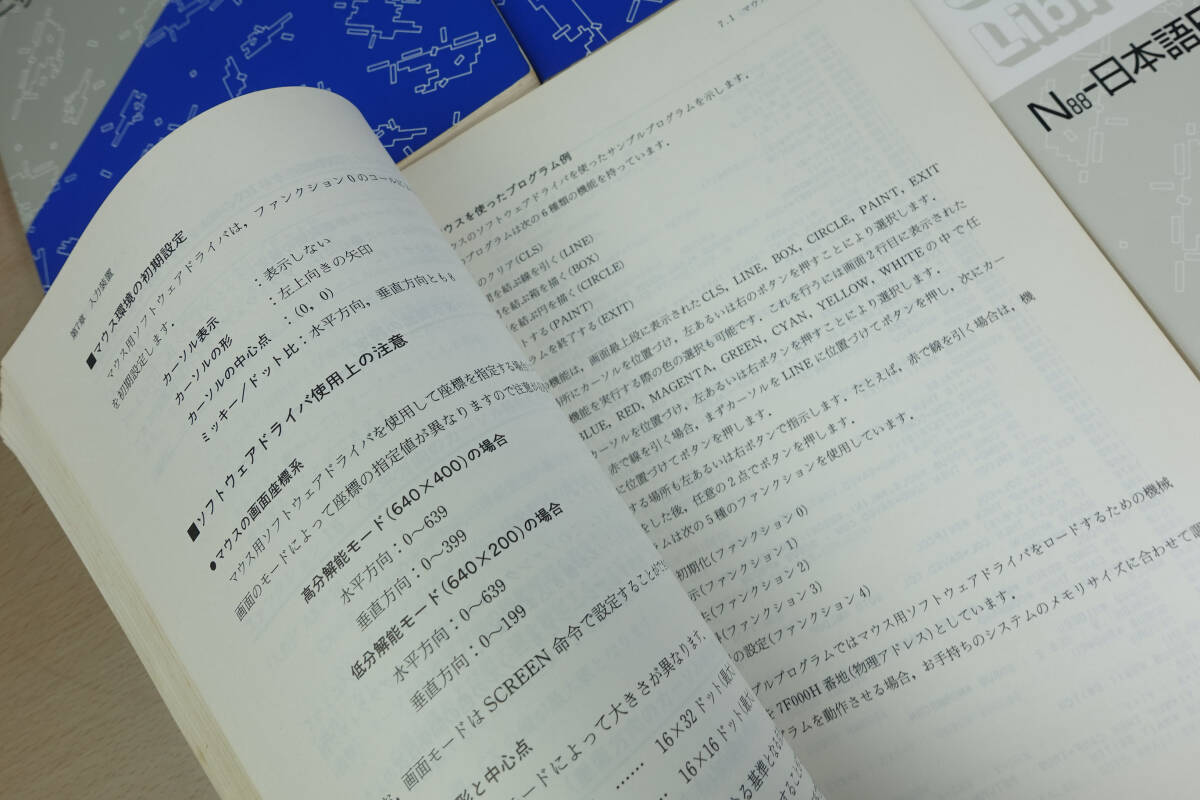 第7章 入力装置
■マウス環境の初期設定
マウス用ソフトウェアドライバは，ファンクション0のコール
を初期設定します．
カーソル表示 ：表示しない
カーソルの形 ：左上向きの矢印
カーソルの中心点 ：(0, 0)
ミッキー／ドット比：水平方向，垂直方向とも
■ソフトウェアドライバ使用上の注意
●マウスの画面座標系
マウス用ソフトウェアドライバを使用して座標を指定する場合
画面のモードによって座標の指定値が異なりますので注意
高分解能モード(640×400)の場合
水平方向：0〜639
垂直方向：0〜399
低分解能モード(640×200)の場合
水平方向：0〜639
垂直方向：0〜199
画面モードはSCREEN命令で設定することが
形と中心点
ードによって大きさが異なります．
…… 16×32ドット
16×16ドット
る基準となる
7.1 マウス
ウスを使ったプログラム例
ウスのソフトウェアドライバを使ったサンプルプログラムを示します．
プログラムは次の6種類の機能を持っています．
のクリア(CLS)
を結ぶ線を引く(LINE)
を結ぶ箱を描く(BOX)
を結ぶ円を描く(CIRCLE)
トする(PAINT)
ラムを終了する(EXIT)
機能は，画面最上段に表示されたCLS, LINE, BOX, CIRCLE, PAINT, EXIT
所にカーソルを位置づけ，左あるいは右のボタンを押すことにより選択します．
機能を実行する際の色の選択も可能です．これを行うには画面2行目に表示された
BLUE, RED, MAGENTA, GREEN, CYAN, YELLOW, WHITEの中で任
カーソルを位置づけ，左あるいは右ボタンを押すことにより選択します．
赤で線を引く場合，まずカーソルをLINEに位置づけてボタンを押し，次にカー
に位置づけてボタンを押します．
する場所も左あるいは右ボタンで指示します．たとえば，赤で線を引く場合は，機
をした後，任意の2点でボタンを押します．
ムは次の5種のファンクションを使用しています．
初期化(ファンクション0)
示(ファンクション1)
去(ファンクション2)
(ファンクション3)
の設定(ファンクション4)
プルプログラムではマウス用ソフトウェアドライバをロードするための機械
7F000H番地(物理アドレス)としています．
グラムを動作させる場合，お手持ちのシステムのメモリサイズに合わせて
Libr
N88-日本語